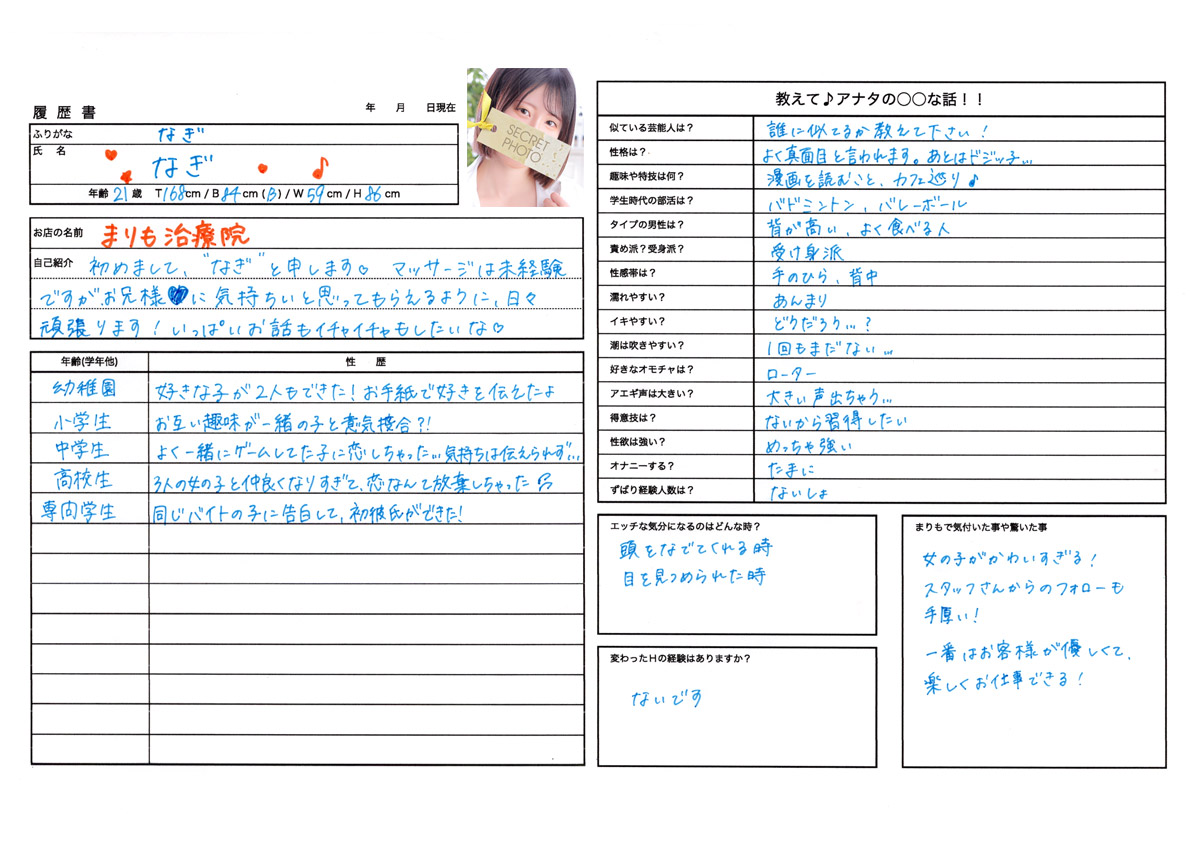 履歴書
年 月 日現在
ふりがな なぎ
氏 名 なぎ
年齢 21 歳 T168cm / B 84 cm (B) / W 59 cm / H 86 cm
SECRET PHOTO
お店の名前 まりも治療院
自己紹介 初めまして、"なぎ"と申します♡ マッサージは未経験
ですがお兄様に気持ちいと思ってもらえるように、日々
頑張ります！いっぱいお話もイチャイチャもしたいな♡
年齢(学年他) 性 歴
幼稚園 好きな子が2人もできた！お手紙で好きを伝えたよ
小学生 お互い趣味が一緒の子と意気投合?!
中学生 よく一緒にゲームしてた子に恋しちゃった… 気持ちは伝えられず…
高校生 3人の女の子と仲良くなりすぎて、恋なんて放棄しちゃった
専門学生 同じバイトの子に告白して、初彼氏ができた！
教えて♪アナタの〇〇な話！！
似ている芸能人は？ 誰に似てるか教えて下さい！
性格は？ よく真面目と言われます。あとはドジッ子…
趣味や特技は何？ 漫画を読むこと、カフェ巡り♪
学生時代の部活は？ バドミントン、バレーボール
タイプの男性は？ 背が高い、よく食べる人
責め派？受身派？ 受け身派
性感帯は？ 手のひら、背中
濡れやすい？ あんまり
イキやすい？ どうだろう…？
潮は吹きやすい？ 1回もまだない…
好きなオモチャは？ ローター
アエギ声は大きい？ 大きい声出ちゃう…
得意技は？ ないから習得したい
性欲は強い？ めっちゃ強い
オナニーする？ たまに
ずばり経験人数は？ ないしょ
エッチな気分になるのはどんな時？
頭をなでてくれる時
目を見つめられた時
変わったHの経験はありますか？
ないです
まりもで気付いた事や驚いた事
女の子がかわいすぎる！
スタッフさんからのフォローも
手厚い！
一番はお客様が優しくて、
楽しくお仕事できる！